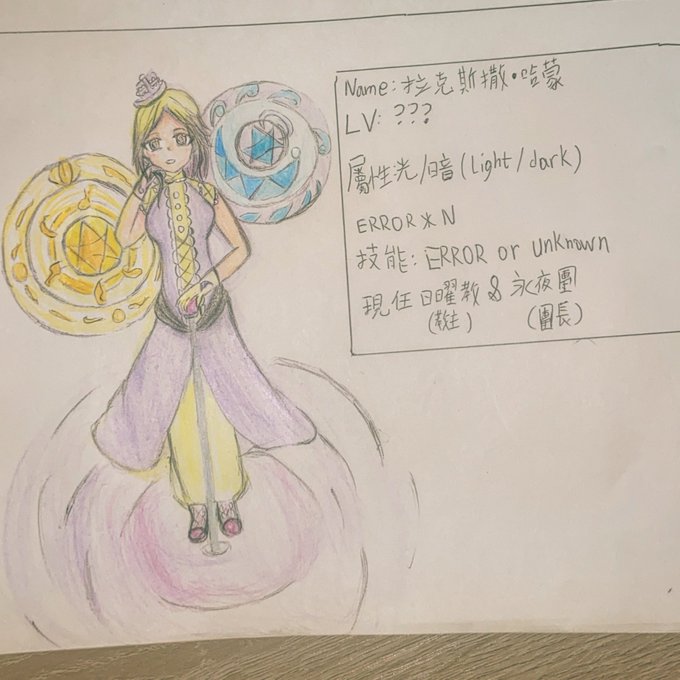 Name: 拉克斯撒·哈蒙
LV: ???
屬性光/暗(Light/dark)
ERROR*N
技能: ERROR or unknown
現任日曜教&永夜團
(教主) (團長)